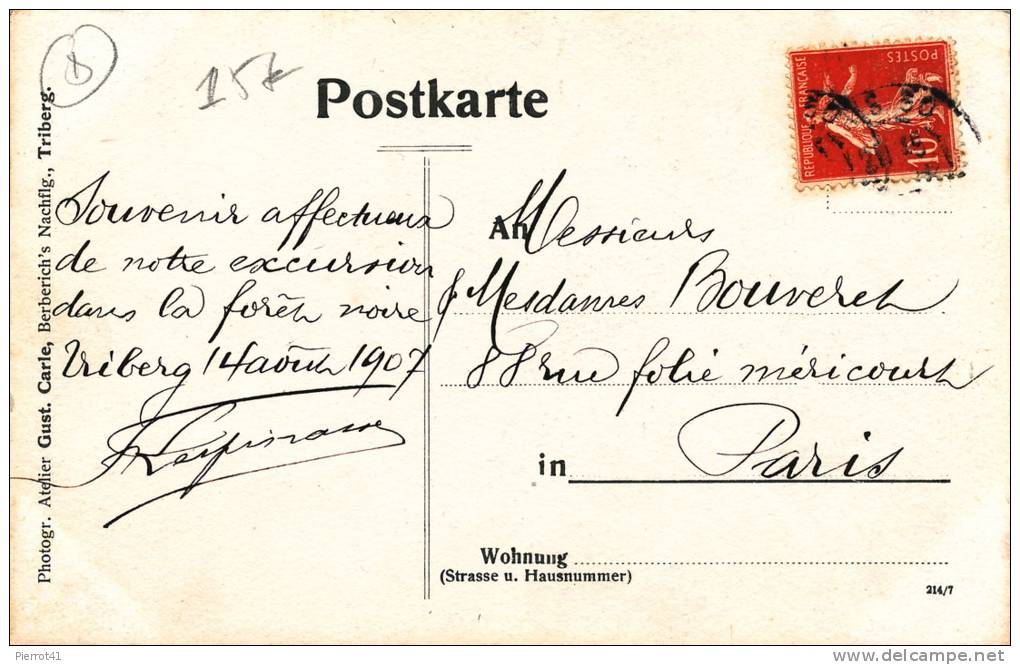 Postkarte
REPUBLIQUE FRANÇAISE
POSTES
10
Photogr. Atelier Gust. Carle, Berberich's Nachflg., Triberg.
Souvenir affectueux
de notre excursion
dans la forêt noire
Triberg 14 août 1907
An Messieurs
& Mesdames Bouveret
88 rue folie méricourt
in Paris
Wohnung
(Strasse u. Hausnummer)
214/7
Pierrot41
www.delcampe.net